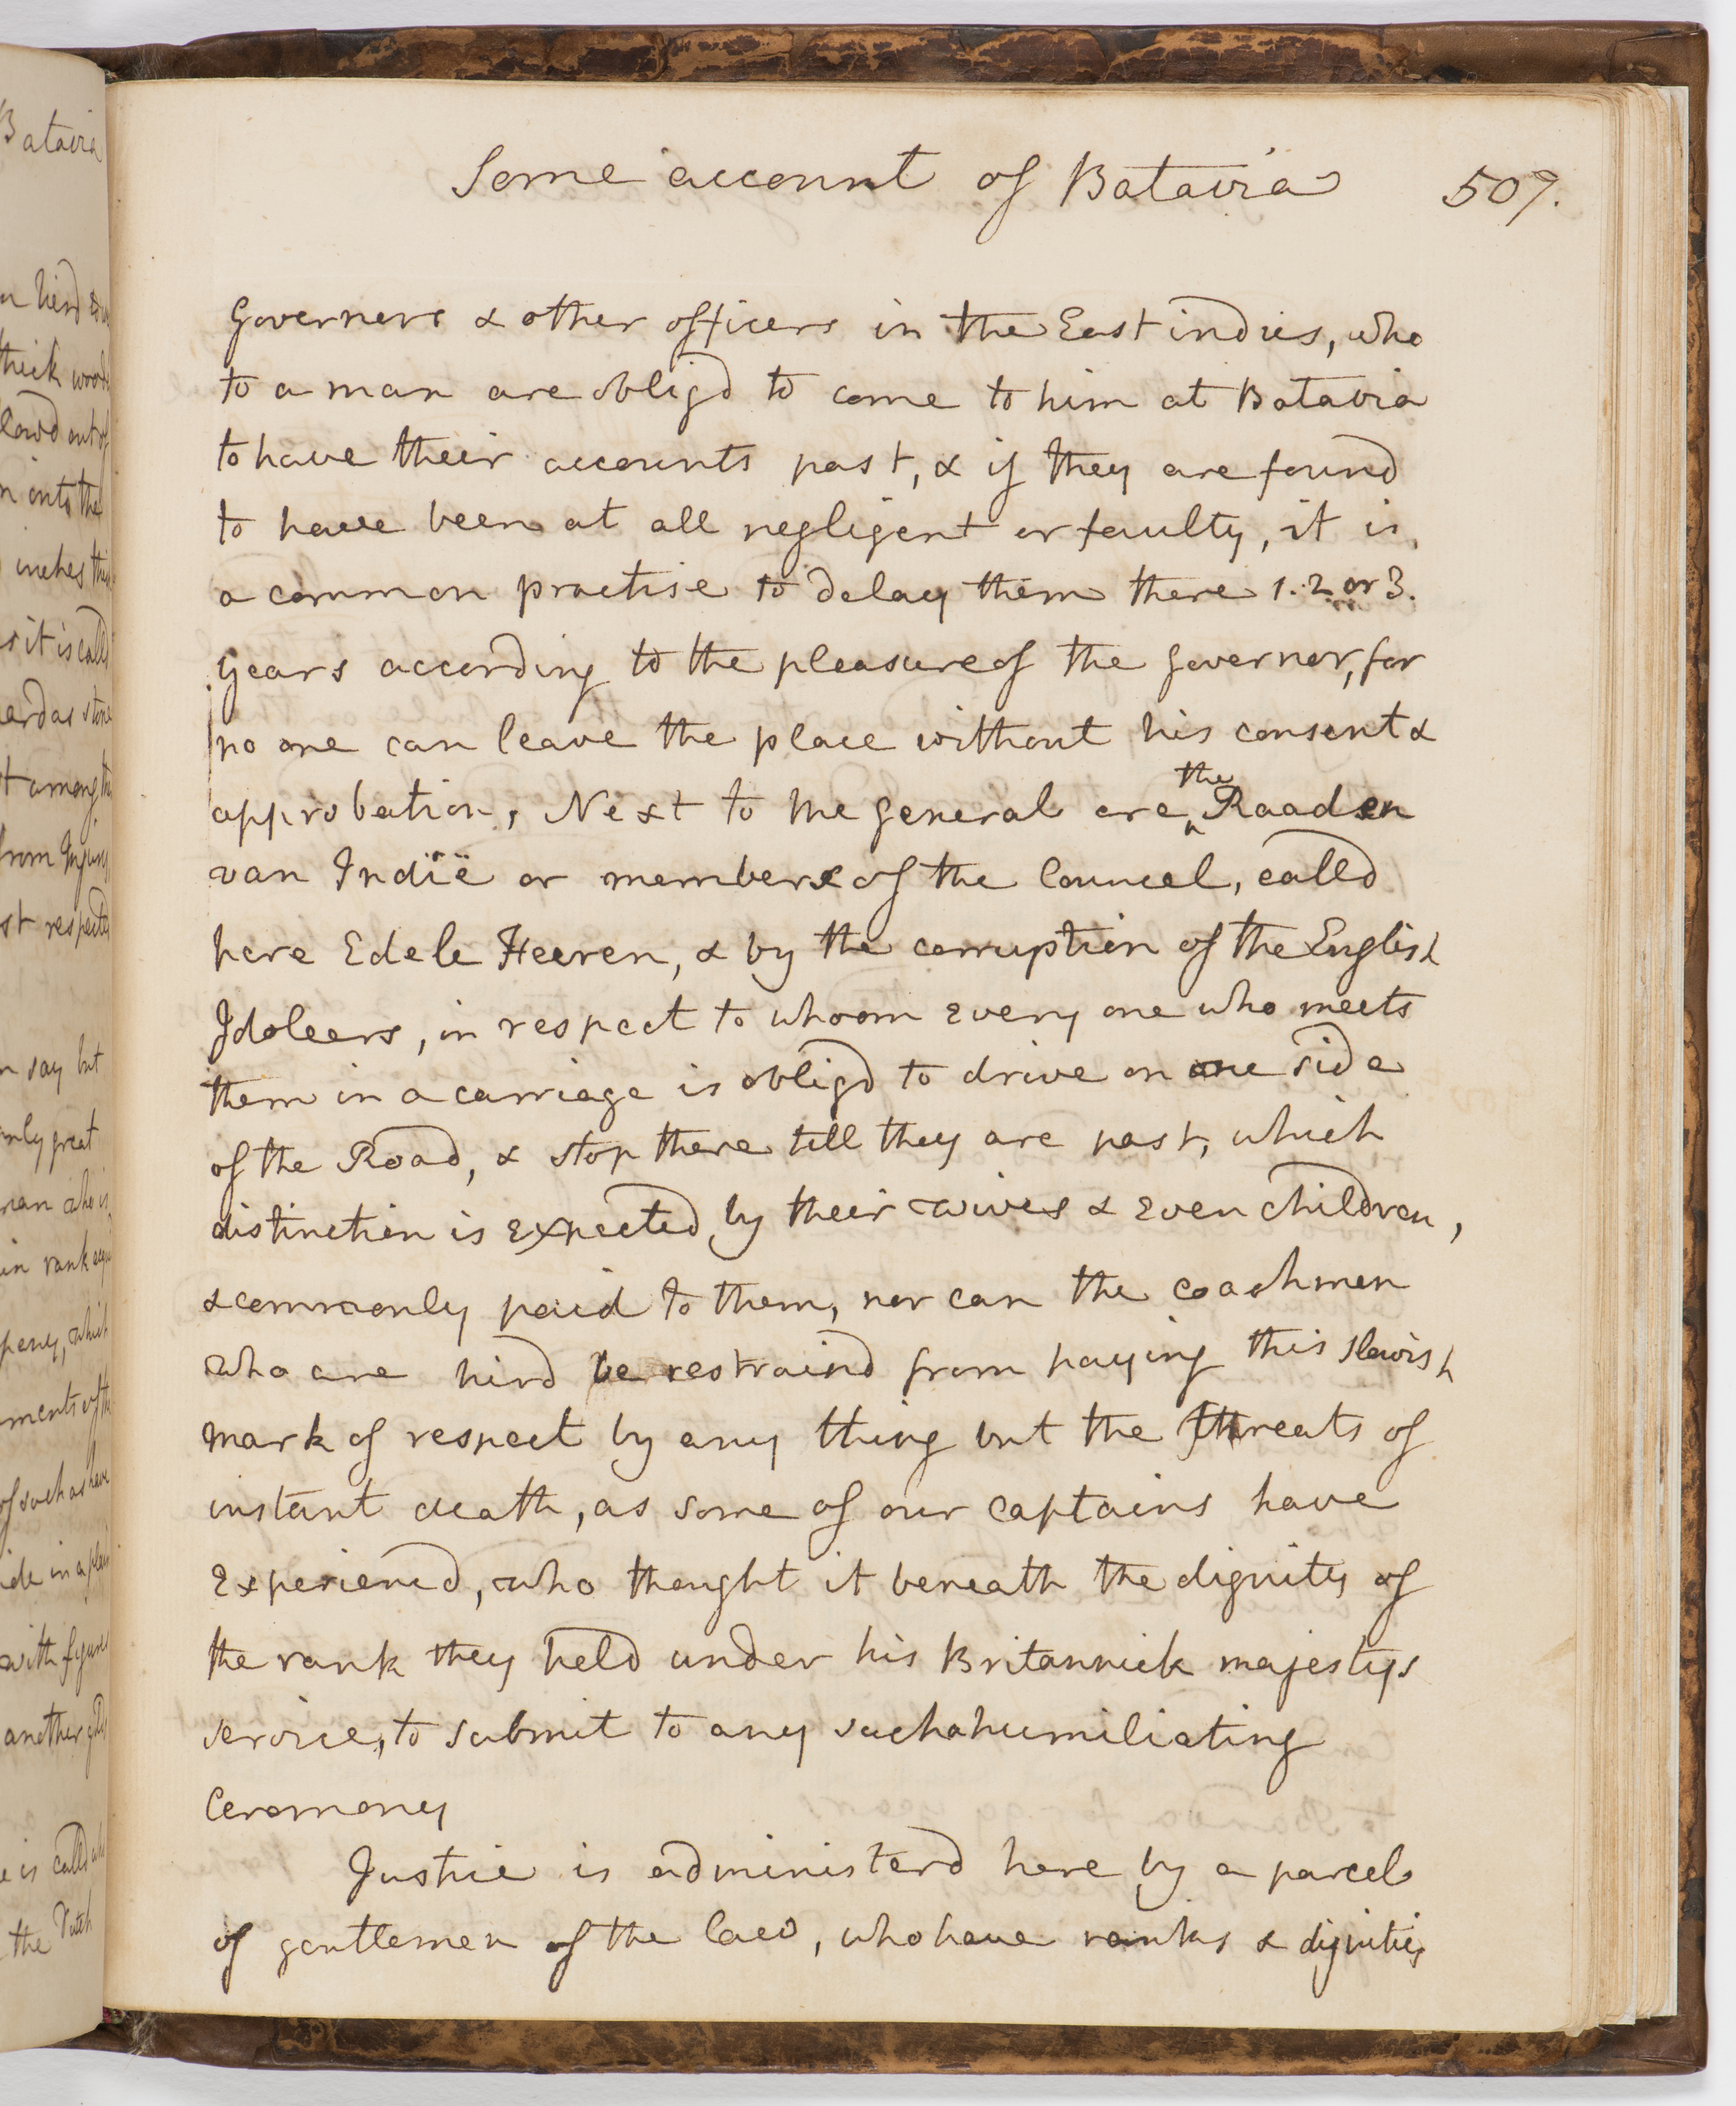 Some account of Batavia 509.
Governers & other officers in the East indies, who
to a man are obligd to come to him at Batavia
to have their accounts past, & if they are found
to have been at all negligent or faulty, it is
a common practise to delay them there 1. 2 or 3.
years according to the pleasure of the governor, for
no one can leave the place without his consent &
approbation, Next to the general are the Raaden
van Indïë or members of the Councel, called
here Edele Heeren, & by the corruption of the English
Idoleers, in respect to whoom every one who meets
them in a carriage is obligd to drive on one side
of the Road, & stop there till they are past, which
distinction is expected by their wives & even children,
& commonly paid to them, nor can the coachmen
who are hird be restraind from paying this slavish
mark of respect by any thing but the threats of
instant death, as some of our captains have
experiencd, who thought it beneath the dignity of
the rank they held under his Britannick majestys
service, to submit to any such a humiliating
Ceremony
Justice is administerd here by a parcel
of gentlemen of the law, who have ranks & dignities
Batavia
thick woods
out of
into the
inches
as it is calld
hard as stone
among the
from Injury
respected
say but
only great
man who is
in rank
which
of the
of such as have
in a plain
with figures
another
is calld
the Dutch